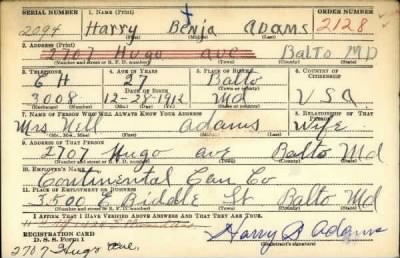 SERIAL NUMBER 1. NAME (Print) ORDER NUMBER
2094 Harry Benja Adams 2128
(First) (Middle) (Last)
2. ADDRESS (Print)
2707 Hugo ave Balto MD
(Number and street or R. F. D. number) (Town) (County) (State)
3. TELEPHONE 4. AGE IN YEARS 5. PLACE OF BIRTH 6. COUNTRY OF CITIZENSHIP
27 Balto
DATE OF BIRTH
3008 12-21-1912 Md USA
(Exchange) (Number) (Mo.) (Day) (Yr.) (State or country)
7. NAME OF PERSON WHO WILL ALWAYS KNOW YOUR ADDRESS 8. RELATIONSHIP OF THAT PERSON
Mrs Adams Wife
(Mr., Mrs., Miss) (First) (Middle) (Last)
9. ADDRESS OF THAT PERSON
2707 Hugo ave Balto Md
(Number and street or R. F. D. number) (Town) (County) (State)
10. EMPLOYER'S NAME
Continental Can Co
11. PLACE OF EMPLOYMENT OR BUSINESS
3500 E Biddle St Balto Md
(Number and street or R. F. D. number) (Town) (County) (State)
I AFFIRM THAT I HAVE VERIFIED ABOVE ANSWERS AND THAT THEY ARE TRUE.
REGISTRATION CARD
D. S. S. Form 1 Harry B Adams
(Registrant's signature)
2707 Hugo ave.